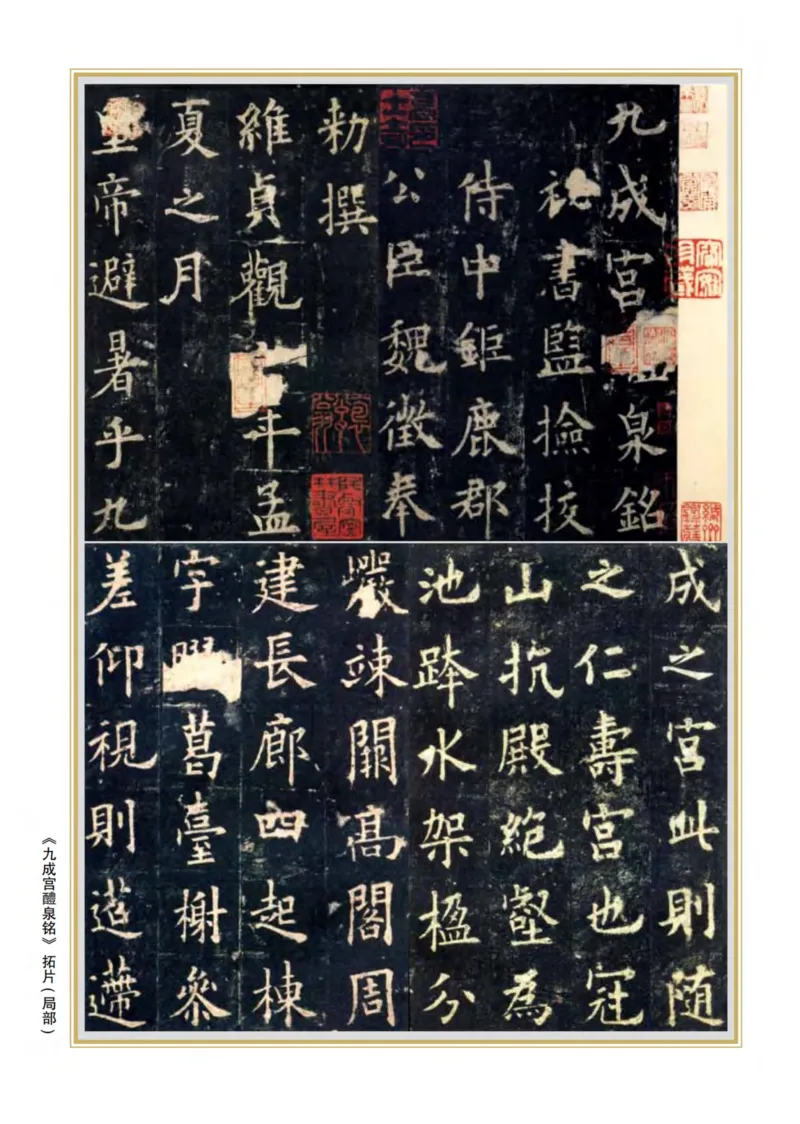 九成宮泉銘
祕書監撿挍
侍中鉅鹿郡
公臣魏徵奉
勑撰
維貞觀年孟
夏之月
皇帝避暑乎九
成之宮此則随
之仁壽宮也冠
山抗殿絕壑為
池跨水架楹分
巖竦闕髙閣周
建長廊四起棟
宇葛臺榭叅
差仰視則迢遰
《九成宫醴泉铭》拓片（局部）